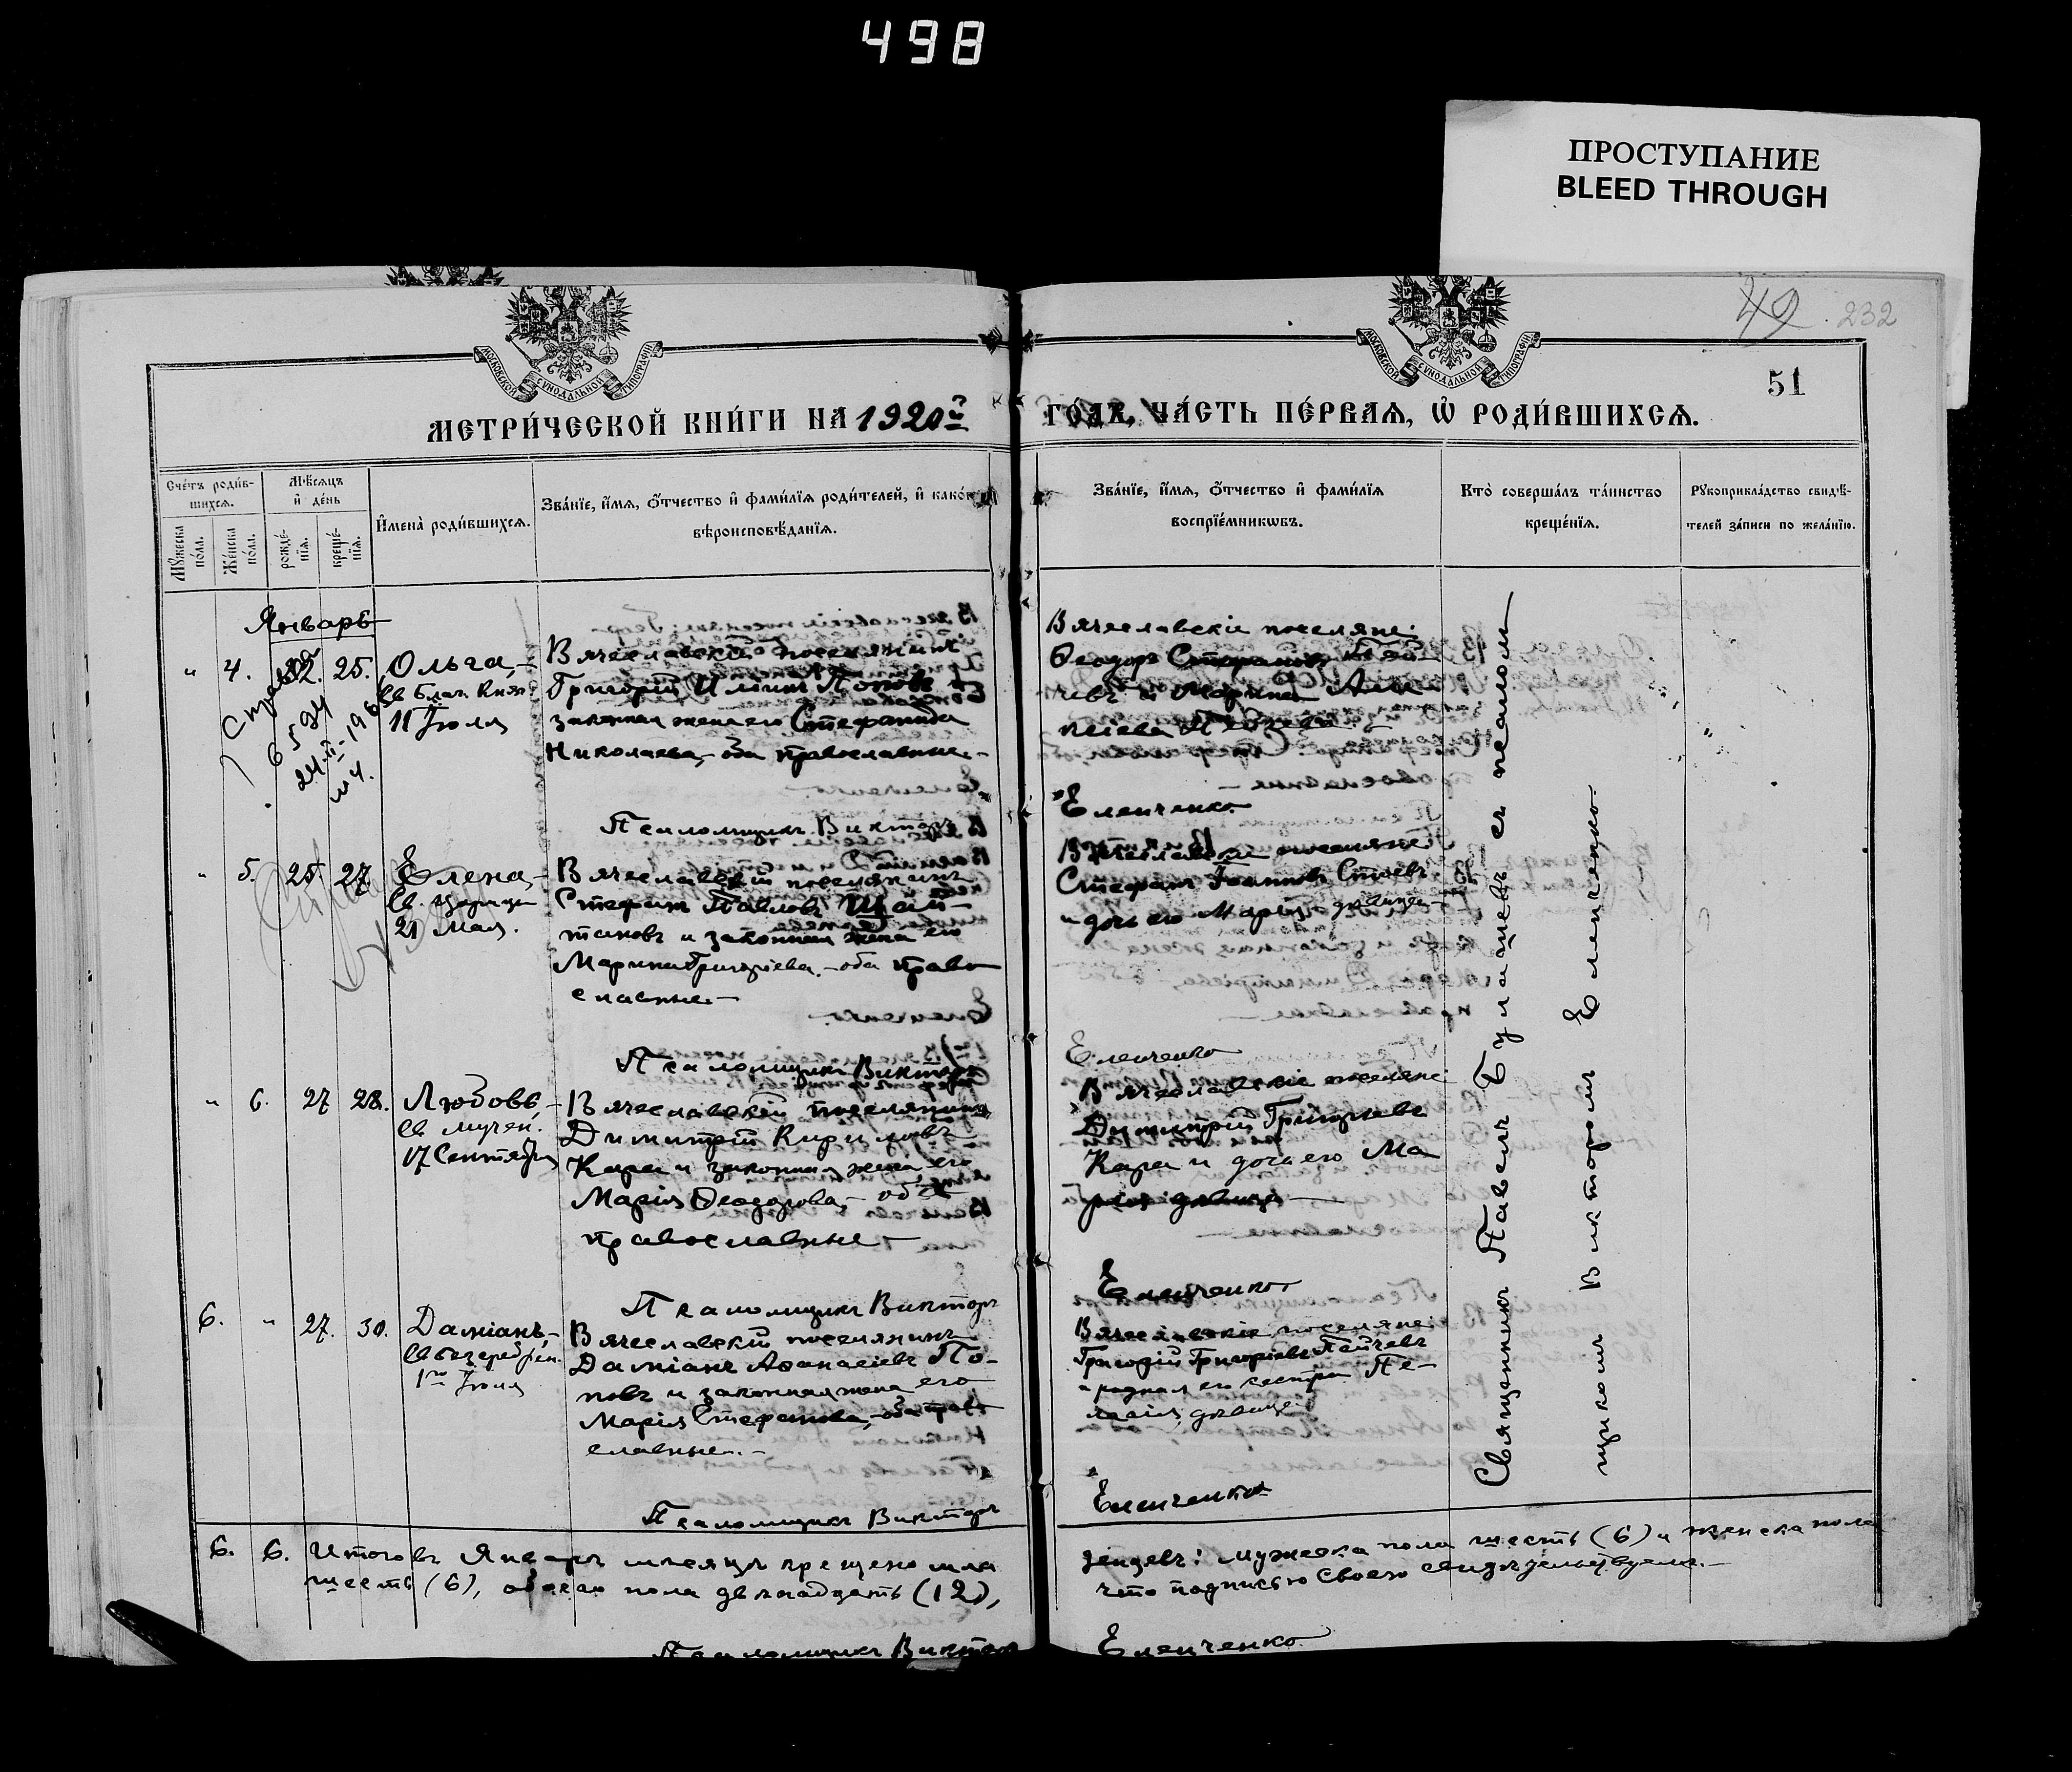 498
ПРОСТУПАНИЕ
BLEED THROUGH
49 232
51
МОСКОВСКОЙ СѴНОДАЛЬНОЙ ТИПОГРАФІИ
МОСКОВСКОЙ СѴНОДАЛЬНОЙ ТИПОГРАФІИ
МЕТРИ́ЧЕСКОЙ КНИ́ГИ НА 1920й
ГО́ДЪ, ЧА́СТЬ ПЕ́РВАЯ, Ѡ҆ РОДИ́ВШИХСѦ.
Сче́тъ роди́в-
шихся.
Мѹ́жеска по́ла.
Же́нска по́ла.
Мѣ́сяцъ
и҆ де́нь
рожде́-
нїя.
креще́-
нїя.
И҆мена̀ роди́вшихся.
Зва́нїе, и҆́мя, ѻ҆́тчество и҆ фами́лїя роди́телей, и҆ како́гѡ
вѣроисповѣ́данїя.
Зва́нїе, и҆́мя, ѻ҆́тчество и҆ фами́лїя
воспрїе́мникѡвъ.
Кто̀ соверша́лъ та́инство
креще́нїя.
Рѹкоприкла́дство свидѣ́-
телей за́писи по жела́нїю.
Январь
" 4. 22. 25. Ольга,-
Св. Благ. Княг.
11 Іюля
Вячеславскій поселянинъ
Григорій Ильинъ Поповъ и
законная жена его Стефанида
Николаева,- оба православные.-
Псаломщикъ Викторъ
Вячеславскіе поселяне:
Ѳеодоръ Стефановъ Пей-
чевъ и Марина
Еленченко
" 5. 25. 27 Елена,-
Св. Царицы
21 Мая.
Вячеславскій поселянинъ
Стефанъ Павловъ
тановъ и законная жена его
Марина Григоріева.- оба право
славные.-
Псаломщикъ Викторъ
Вячеславскіе поселяне:
Стефанъ Іоанновъ Стоевъ
и дочь его Марія девица
Еленченко
" 6. 27 28. Любовь,-
Св. мучен.
17 Сентября
Вячеславскій поселянинъ
Димитрій Кириловъ
Кара и законная жена его
Марія Ѳеодорова,- оба
православные -
Псаломщикъ Викторъ
Вячеславскіе поселяне:
Димитрій Григорьевъ
Кара и дочь его Ма
рія девица
Еленченко
6. " 27. 30. Даміанъ,-
Св. безсребрен.
1го Іюля
Вячеславскій поселянинъ
Даміанъ Аѳанасіевъ По-
повъ и законная жена его
Марія Стефанова,- оба право
славные.-
Псаломщикъ Викторъ
Вячеславскіе поселяне:
Григорій Григоріевъ Пейчевъ
и родная его сестра Пе-
лагія, девица
Еленченко
Священникъ Павелъ Булащевъ съ псалом
щикомъ Викторомъ Еленченко
6. 6. Итого въ Январѣ мѣсяцѣ крещено мла
денцевъ: мужеска пола шесть (6) и женска пола
шесть (6), обоего пола двѣнадцать (12),
что подписью своею свидѣтельствуемъ.-
Псаломщикъ Виктор
Еленченко